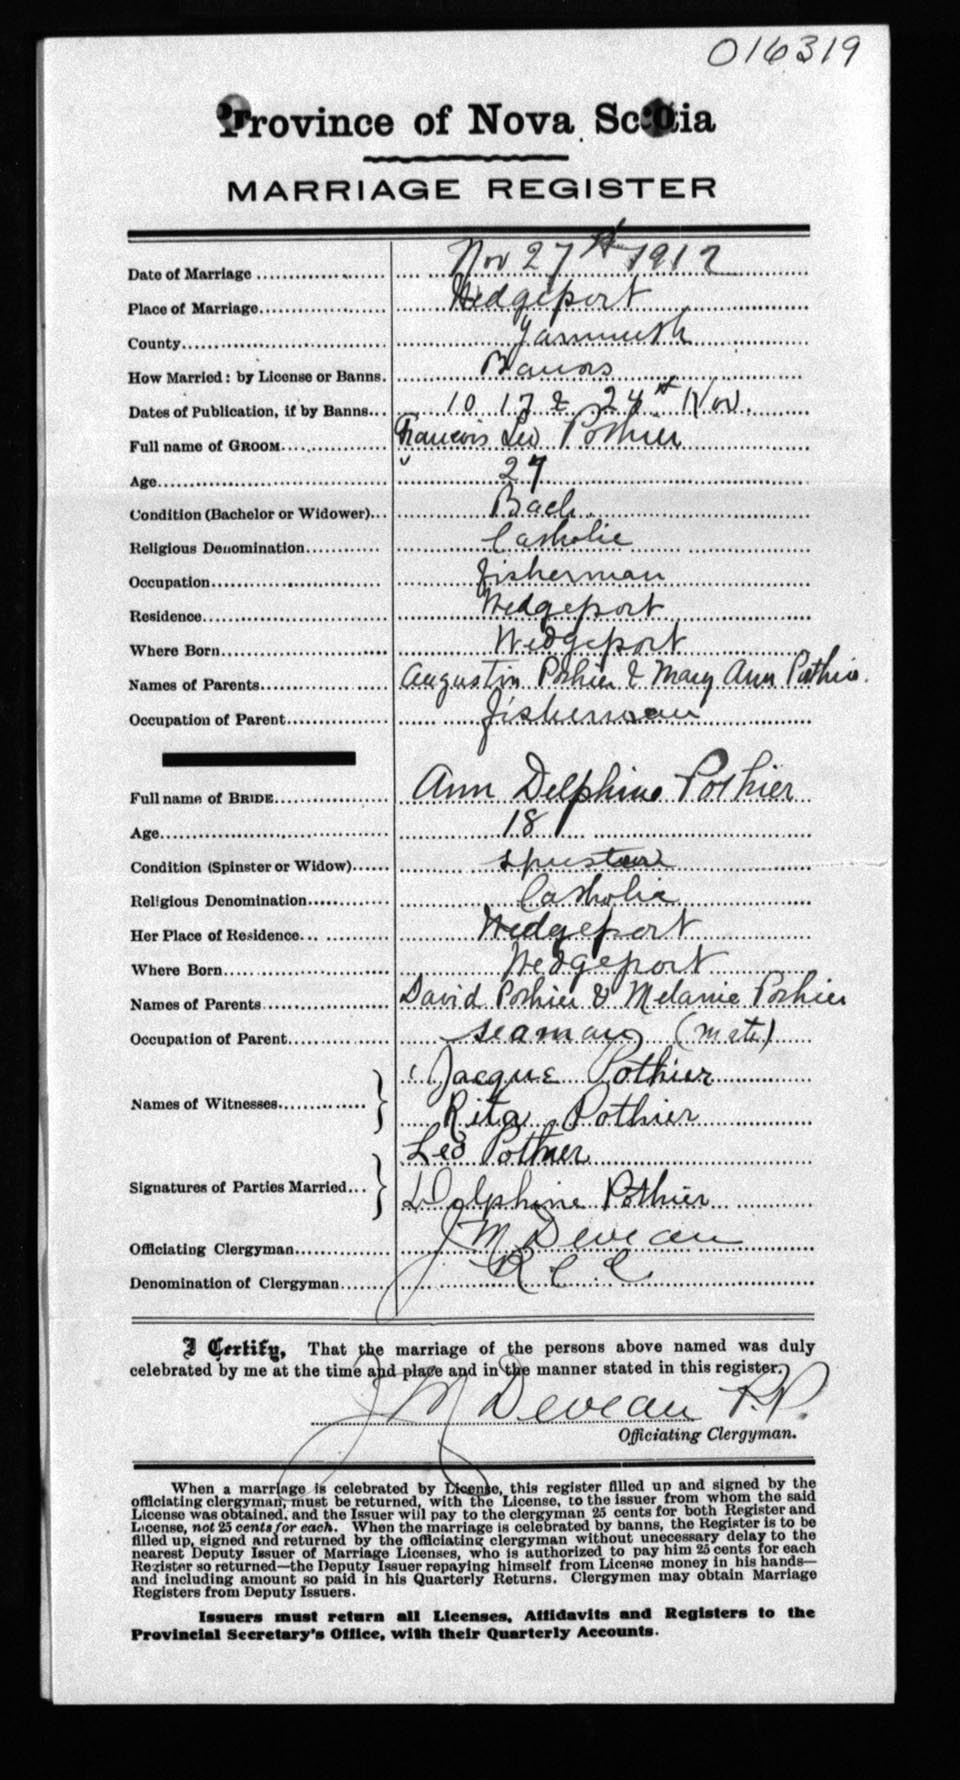 016319
Province of Nova Scotia
MARRIAGE REGISTER
Date of Marriage Nov 27th 1912
Place of Marriage Wedgeport
County Yarmouth
How Married: by License or Banns. Banns
Dates of Publication, if by Banns 10 17 & 24th Nov.
Full name of GROOM Francois Leo Pothier
Age 27
Condition (Bachelor or Widower) Bach.
Religious Denomination Catholic
Occupation fisherman
Residence Wedgeport
Where Born Wedgeport
Names of Parents Augustin Pothier & Mary Ann Pothier.
Occupation of Parent fisherman
Full name of BRIDE Ann Delphine Pothier
Age 18
Condition (Spinster or Widow) spinster
Religious Denomination Catholic
Her Place of Residence Wedgeport
Where Born Wedgeport
Names of Parents David Pothier & Melanie Pothier
Occupation of Parent seaman (mate)
Names of Witnesses Jacque Pothier
Rita Pothier
Signatures of Parties Married Leo Pothier
Dolphine Pothier
Officiating Clergyman J M Deveau
Denomination of Clergyman R C C
I Certify, That the marriage of the persons above named was duly
celebrated by me at the time and place and in the manner stated in this register.
J M Deveau P.P.
Officiating Clergyman.
When a marriage is celebrated by License, this register filled up and signed by the
officiating clergyman, must be returned, with the License, to the issuer from whom the said
License was obtained, and the Issuer will pay to the clergyman 25 cents for both Register and
License, not 25 cents for each. When the marriage is celebrated by banns, the Register is to be
filled up, signed and returned by the officiating clergyman without unecessary delay to the
nearest Deputy Issuer of Marriage Licenses, who is authorized to pay him 25 cents for each
Register so returned—the Deputy Issuer repaying himself from License money in his hands—
and including amount so paid in his Quarterly Returns. Clergymen may obtain Marriage
Registers from Deputy Issuers.
Issuers must return all Licenses, Affidavits and Registers to the
Provincial Secretary's Office, with their Quarterly Accounts.